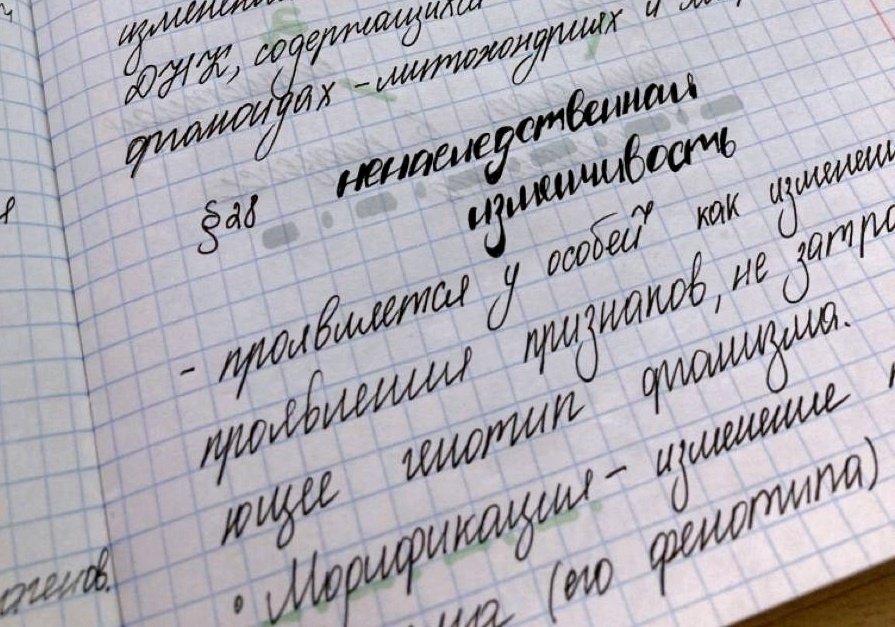 ДНК, содержащихся
органоидах - митохондриях и
§28 ненаследственная
изменчивость
- проявляется у особей как изменени
проявления признаков, не затра
ющее генотип организма.
• Модификация - изменение
(его фенотипа)